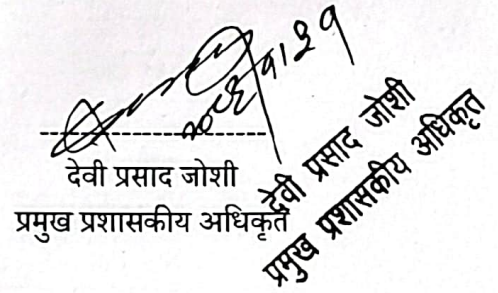 देवी प्रसाद जोशी
प्रमुख प्रशासकीय अधिकृत
देवी प्रसाद जोशी
प्रमुख प्रशासकीय अधिकृत